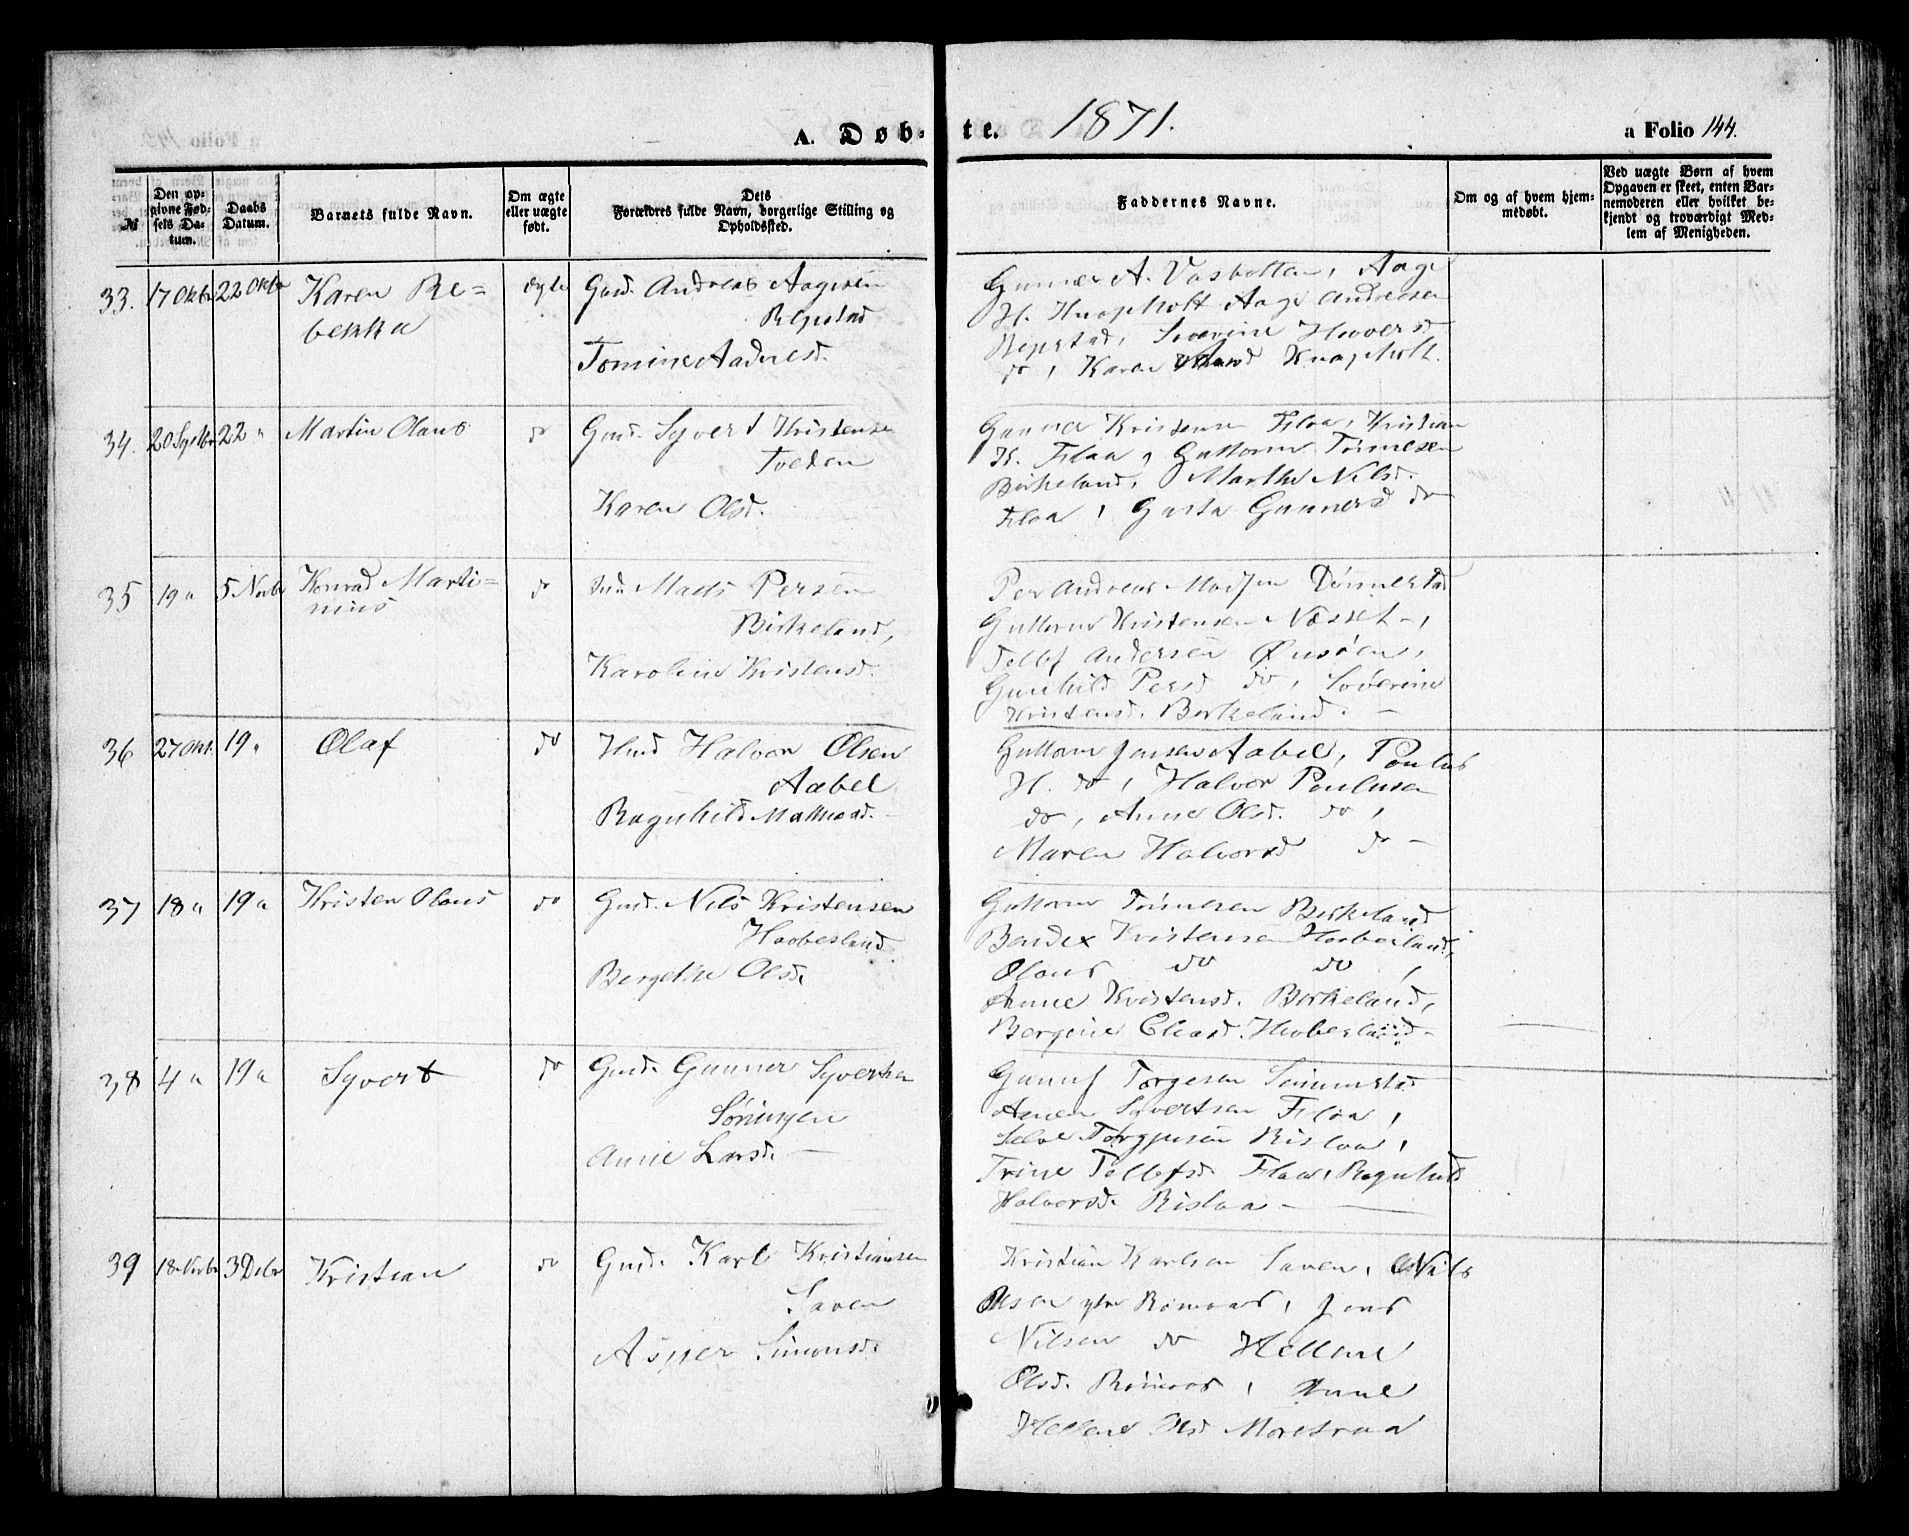 A. Døb-te. 1871.
a Folio 144.
№
Den op-
givne Fød-
sels Da-
tum.
Daabs
Datum.
Barnets fulde Navn.
Om ægte
eller uægte
født.
Dets
Forældres fulde Navn, borgerlige Stilling og
Opholdssted.
Faddernes Navne.
Om og af hvem hjem-
medøbt.
Ved uægte Børn af hvem
Opgaven er skeet, enten Bar-
nemoderen eller hvilket be-
kjendt og troværdigt Med-
lem af Menigheden.
33. 17 Oktbr 22 Oktbr Karen Re-
bekka
ægte
Gmd. Andreas Aagesen
Repstad
Tomine Aadnesd.
Gunner A. Vasbotten, Aage
H. Knapholt Aage Andreasen
Repstad, Severine Havorsd
do, Karen Knapholt.
34. 20 Septbr 22 " Martin Olaus do
Gmd. Syvert Kristensen
Tveden
Karen Olsd.
Gunner Kristensen Flaa, Kristian
K. Flaa, Guttorm Tørresen
Birkeland, Marthe Nilsd.
Flaa, Gusta Gunnersd do
35 19 " 5 Novbr Konrad Marti-
nius
do
Mads Persen
Birkeland,
Karoline Kristensd.
Per Andreas Madsen Dønnestad
Guttorm Kristensen Næsset,
Tellef Andersen
Gunhild Persd do, Severine
Kristensd. Birkeland. -
36 27 Okt. 19 " Olaf do
Hmd Halvor Olsen
Aabel
Ragnhild
Guttorm Jensen Aabel, Poulus
H. do, Halvor Poulusen
do, Anne Olsd. do,
Maren Halvorsd do -
37 18 " 19 " Kristen Olaus do
Gmd. Nils Kristensen
Haabesland
Bergithe Olsd.
Guttorm Tørresen Birkeland
Bendix Kristensen Haabesland,
Olaus do do,
Anne Kristensd. Birkeland,
Bergine Eliasd. Haabesland -
38 4 " 19 " Syvert do
Gmd. Gunner Syvertsen
Søringen
Anne Larsd. -
Gunuf Torgesen
Syvertsen Flaa,
Rislaa,
Trine Tellefsd. Flaa, Ragnhild
Halvorsd. Rislaa -
39 18 Novbr 3 Debr Kristian do
Gmd. Karl Kristiansen
Saven
Asper Simonsd.
Kristian Karlsen Saven, Nils
Olsen ytre Røinaas, Jens
Nilsen do Hellene
Olsd. Røinaas, Anne
Hellene Olsd